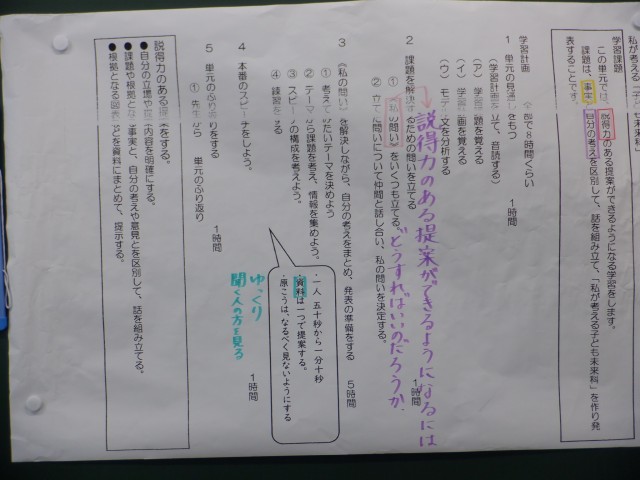 私が考える「子ども未来科」
学習課題
この単元では、説得力のある提案ができるようになる学習をします。
課題は、事実と自分の考えを区別して、話を組み立て、「私が考える子ども未来科」を作り発
表することです。
学習計画 全部で8時間ぐらい
1 単元の見通しをもつ 1時間
(学習計画を立て、音読する)
(ア) 学習課題を覚える
(イ) 学習計画を覚える
(ウ) モデル文を分析する
説得力のある提案ができるようになるには
2 課題を解決するための問いを立てる 1時間
どうすればいいのだろうか。
① 《私の問い》をいくつも立てる。
② 立てた問いについて仲間と話し合い、私の問いを決定する。
3 《私の問い》を解決しながら、自分の考えをまとめ、発表の準備をする 5時間
① 考えてみたいテーマを決めよう
② テーマから課題を考え、情報を集めよう。
③ スピーチの構成を考えよう。
④ 練習をする
・一人 五十秒から一分十秒
・資料は一つで提案する。
・原こうは、なるべく見ないようにする
4 本番のスピーチをしよう。 1時間
ゆっくり
聞く人の方を見る
5 単元のふり返りをする 1時間
① 先生から 単元のふり返り
説得力のある提案をする。
●自分の立場や提案内容を明確にする。
●課題や根拠となる事実と、自分の考えや意見とを区別して、話を組み立てる。
●根拠となる図表などを資料にまとめて、提示する。